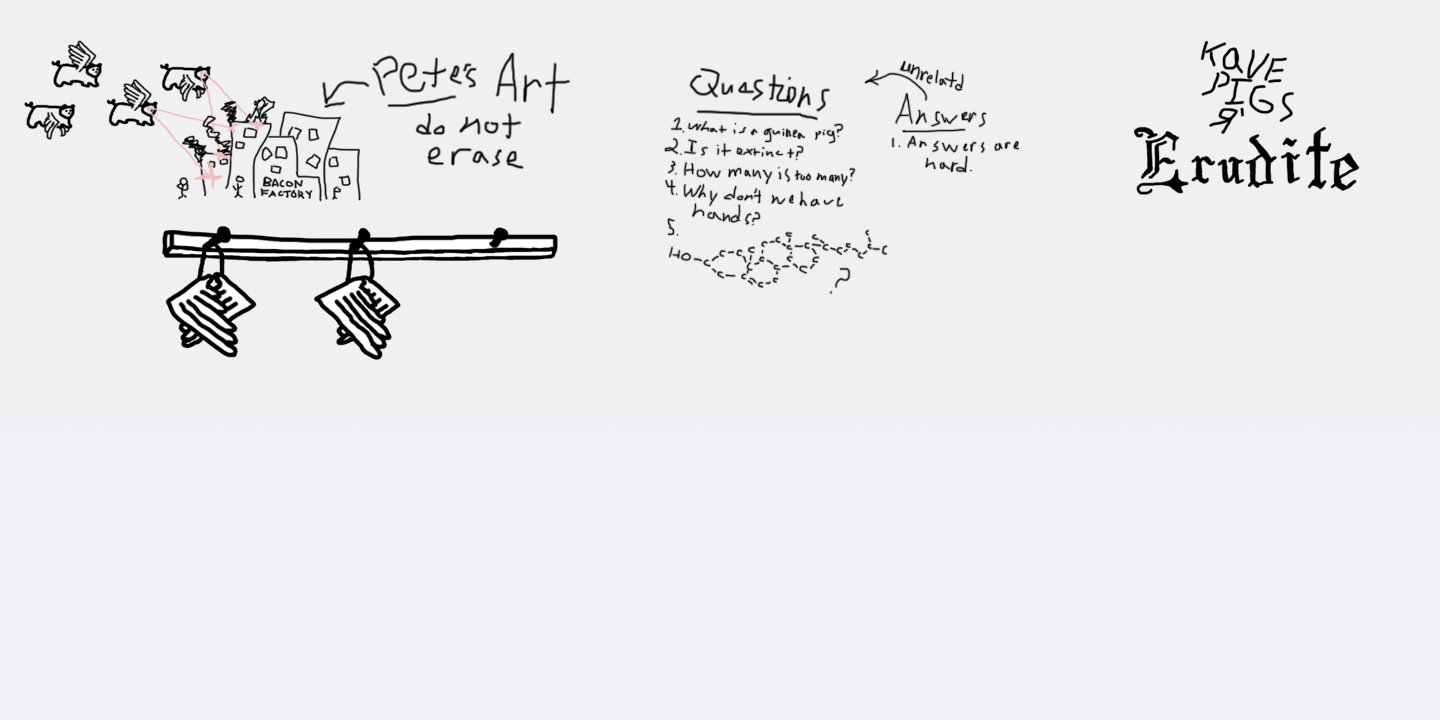 Pete's Art
do not
erase
BACON
FACTORY
Questions
1. What is a guinea pig?
2. Is it extinct?
3. How many is too many?
4. Why don't we have
hands?
5.
HO
?
unrelatd
Answers
1. Answers are
hard.
KAVE
PIGS
Erudite